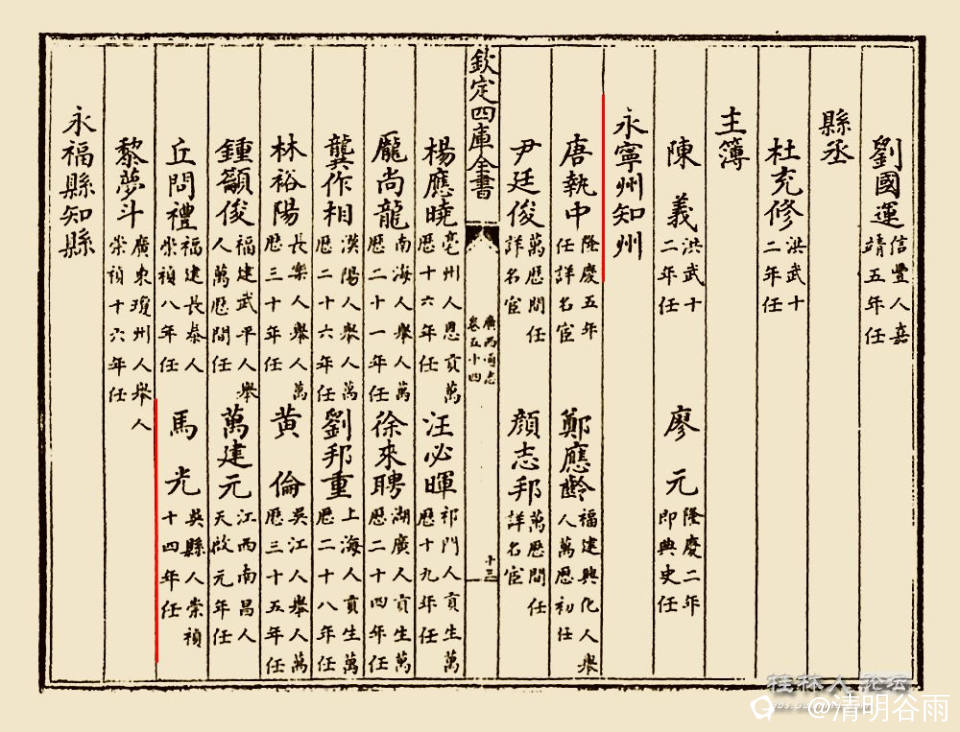 劉國運 信豐人嘉靖五年任
縣丞
杜充修 洪武十二年任
主簿
陳義 洪武十二年任 廖元 隆慶二年即典史任
永寧州知州
唐執中 隆慶五年任詳名宦 鄭應齡 福建興化人舉人萬歷初任
尹廷俊 萬歷間任詳名宦 顏志邦 萬歷間任詳名宦
欽定四庫全書 廣西通志卷五十四 十三
楊應曉 亳州人恩貢萬歷十六年任 汪必暉 祁門人貢生萬歷十九年任
龎尚龍 南海人舉人萬歷二十一年任 徐來聘 湖廣人貢生萬歷二十四年任
龔作相 漢陽人舉人萬歷二十六年任 劉邦重 上海人貢生萬歷二十八年任
林裕陽 長樂人舉人萬歷三十年任 黃倫 吳江人舉人萬歷三十五年任
鍾籲俊 福建武平人舉人萬歷間任 萬建元 江西南昌人天啟元年任
丘問禮 福建長泰人崇禎八年任 馬光 吳縣人崇禎十四年任
黎夢斗 廣東瓊州人舉人崇禎十六年任
永福縣知縣
桂林人论坛
@清明谷雨